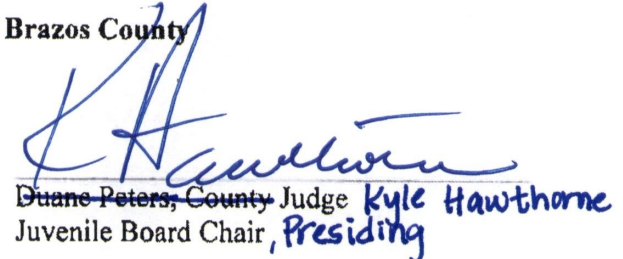 Brazos County
K Hawthorne
Duane Peters, County Judge Kyle Hawthorne
Juvenile Board Chair, Presiding